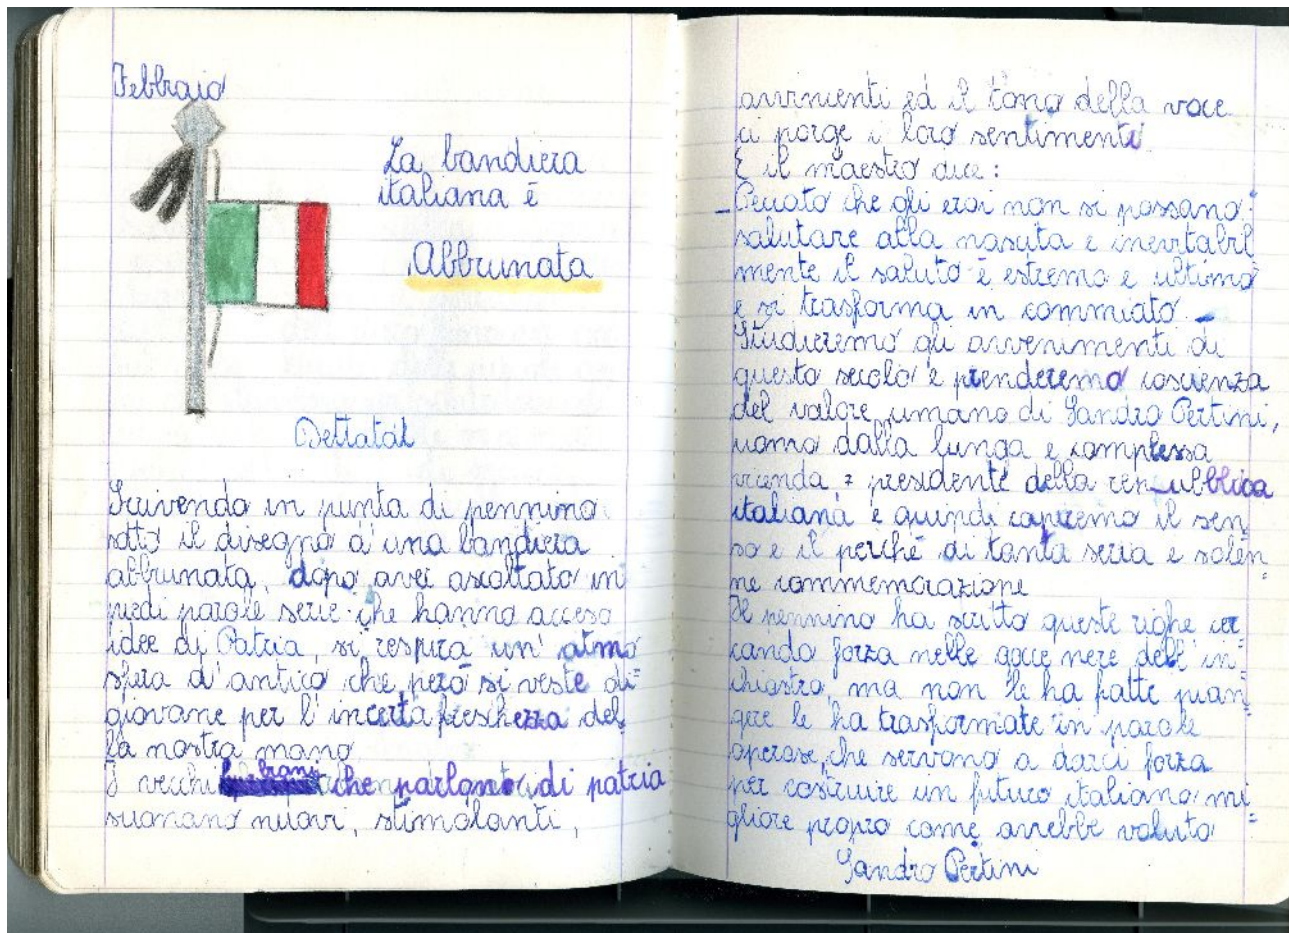 Febbraio
La bandiera
italiana è
Abbrunata
Dettato
Scrivendo in punta di pennino
sotto il disegno d'una bandiera
abbrunata, dopo aver ascoltato in
piedi parole serie che hanno acceso
idee di Patria, si respira un' atmo
sfera d'antico che però si veste di
giovane per l'incerta freschezza del
la nostra mano
I vecchi brani che parlano di patria
suonano nuovi, stimolanti,
avvincenti ed il tono della voce
ci porge i loro sentimenti
E il maestro dice:
_Peccato che gli eroi non si possano
salutare alla nascita e inevitabil
mente il saluto è estremo e ultimo
e si trasforma in commiato._
Studieremo gli avvenimenti di
questo secolo e prenderemo coscienza
del valore umano di Sandro Pertini,
uomo dalla lunga e complessa
vicenda, presidente della repubblica
italiana e quindi capiremo il sen
so e il perché di tanta seria e solen
ne commemorazione
Il pennino ha scritto queste righe cer
cando forza nelle gocce nere dell'in
chiostro, ma non le ha fatte pian
gere le ha trasformate in parole
operose, che servono a darci forza
per costruire un futuro italiano mi
gliore propro come avrebbe voluto
Sandro Pertini